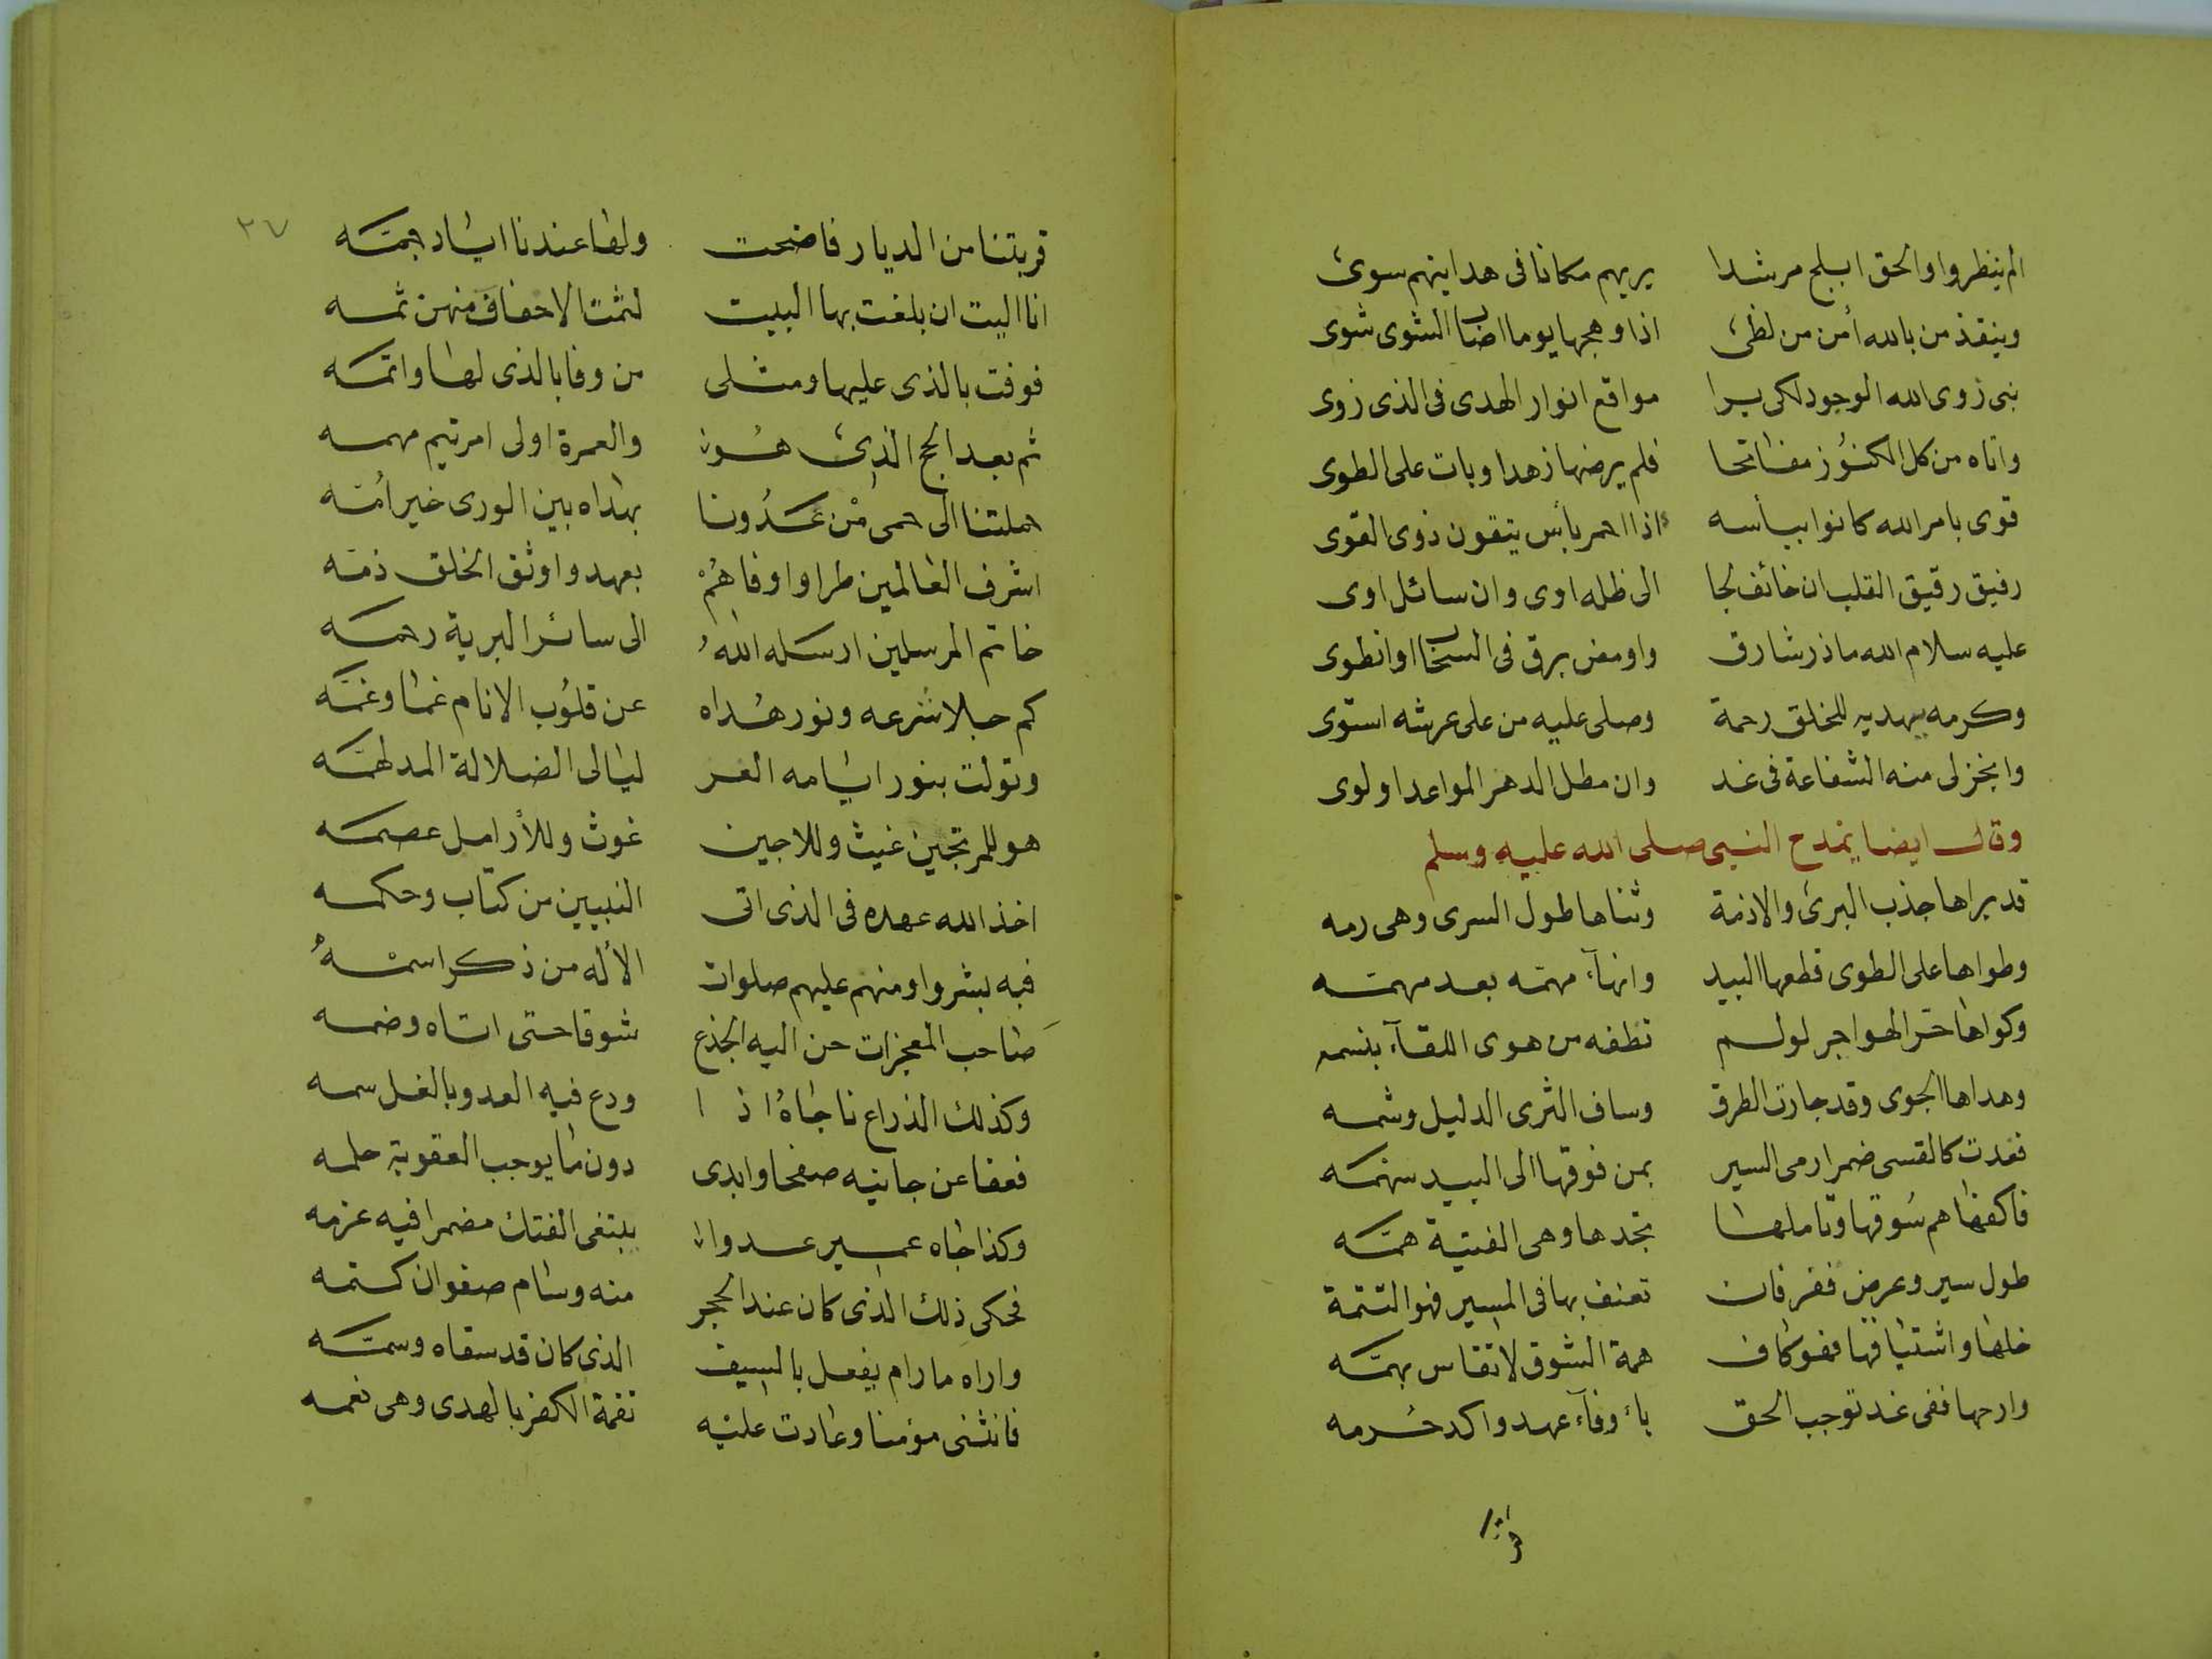 الم ينظروا والحق ابلج مرشدا يريهم مكانا فى هدايتهم سوى
وينقذ من بالله أمن من لظى اذا وهجها يوما اصاب الشوى شوى
نبى زوى الله الوجود لكى يرا مواقع انوار الهدى فى الذى زوى
واتاه من كل الكنوز مفاتحا فلم يرضها زهدا وبات على الطوى
قوى بامر الله كانوا ببأسه اذا احمر بأس يتقون ذوى القوى
رفيق رقيق القلب ان خائف لجا الى ظله اوى وان سائل اوى
عليه سلام الله ما ذر شارق واومض برق فى السحاب او انطوى
وكرمه يهديه للخلق رحمة وصلى عليه من على عرشه استوى
وانجز لى منه الشفاعة فى غد وان مطل الدهر المواعد او لوى
وقال ايضا يمدح النبى صلى الله عليه وسلم
قد براها جذب البرى والازمة وثناها طول السرى وهى رمه
وطواها على الطوى قطعها البيد وانهآء مهمه بعد مهمه
وكواها حر الهواجر لو لم تطفه من هوى اللقآء بنسمه
وهداها الجوى وقد جارت الطرق وساف الثرى الدليل وشمه
فغدت كالقسى ضمرا رمى السير بمن فوقها الى البيد سهمه
فاكفها هم سوقها وتاملها تجدها وهى الفتية همه
طول سير وعرض قفر فان تعنف بها فى المسير فهو التتمة
خلها واشتياقها فهو كاف همة الشوق لا تقاس بهمه
وارحها ففى غد توجب الحق بأوفآء عهد واكد حرمه
قربتنا
قربتنا من الديار فاضحت ولها عندنا اياد جمه ٢٧
انا اليت ان بلغت بها البيت لثمت الاخفاف منهن ثمه
فوفت بالذى عليها ومثلى من وفا بالذى لها واتمه
ثم بعد الحج الذى هو والعمرة اولى امر تيم مهمه
حملتنا الى حمى من غدونا بهداه بين الورى خير امه
اشرف العالمين طرا واوفاهم بعهد واوثق الخلق ذمه
خاتم المرسلين ارسله الله الى سائر البرية رحمه
كم جلا شرعه ونور هداه عن قلوب الانام غما وغمه
وتولت بنور ايامه الغر ليالى الضلالة المدلهمه
هو للمرتجين غيث وللاجين غوث وللأرامل عصمه
اخذ الله عهده فى الذى اتى النبيين من كتاب وحكمه
فبه بشروا ومنهم عليهم صلوات الأله من ذكر اسمه
صاحب المعجزات حن اليه الجذع شوقا حتى اتاه وضمه
وكذلك الذراع ناجاه اذ ا ودع فيه العدو بالغل سمه
فعفا عن جانيه صفحا وابدى دون ما يوجب العقوبة حلمه
وكذا جاه عمير عدوا يبتغى الفتك مضمرا فيه عزمه
فحكى ذلك الذى كان عند الحجر منه وسام صفوان كتمه
واراه ما رام يفعل بالسيف الذى كان قد سقاه وسمه
فانثنى مؤمنا وعادت عليه نقمة الكفر بالهدى وهى نعمه